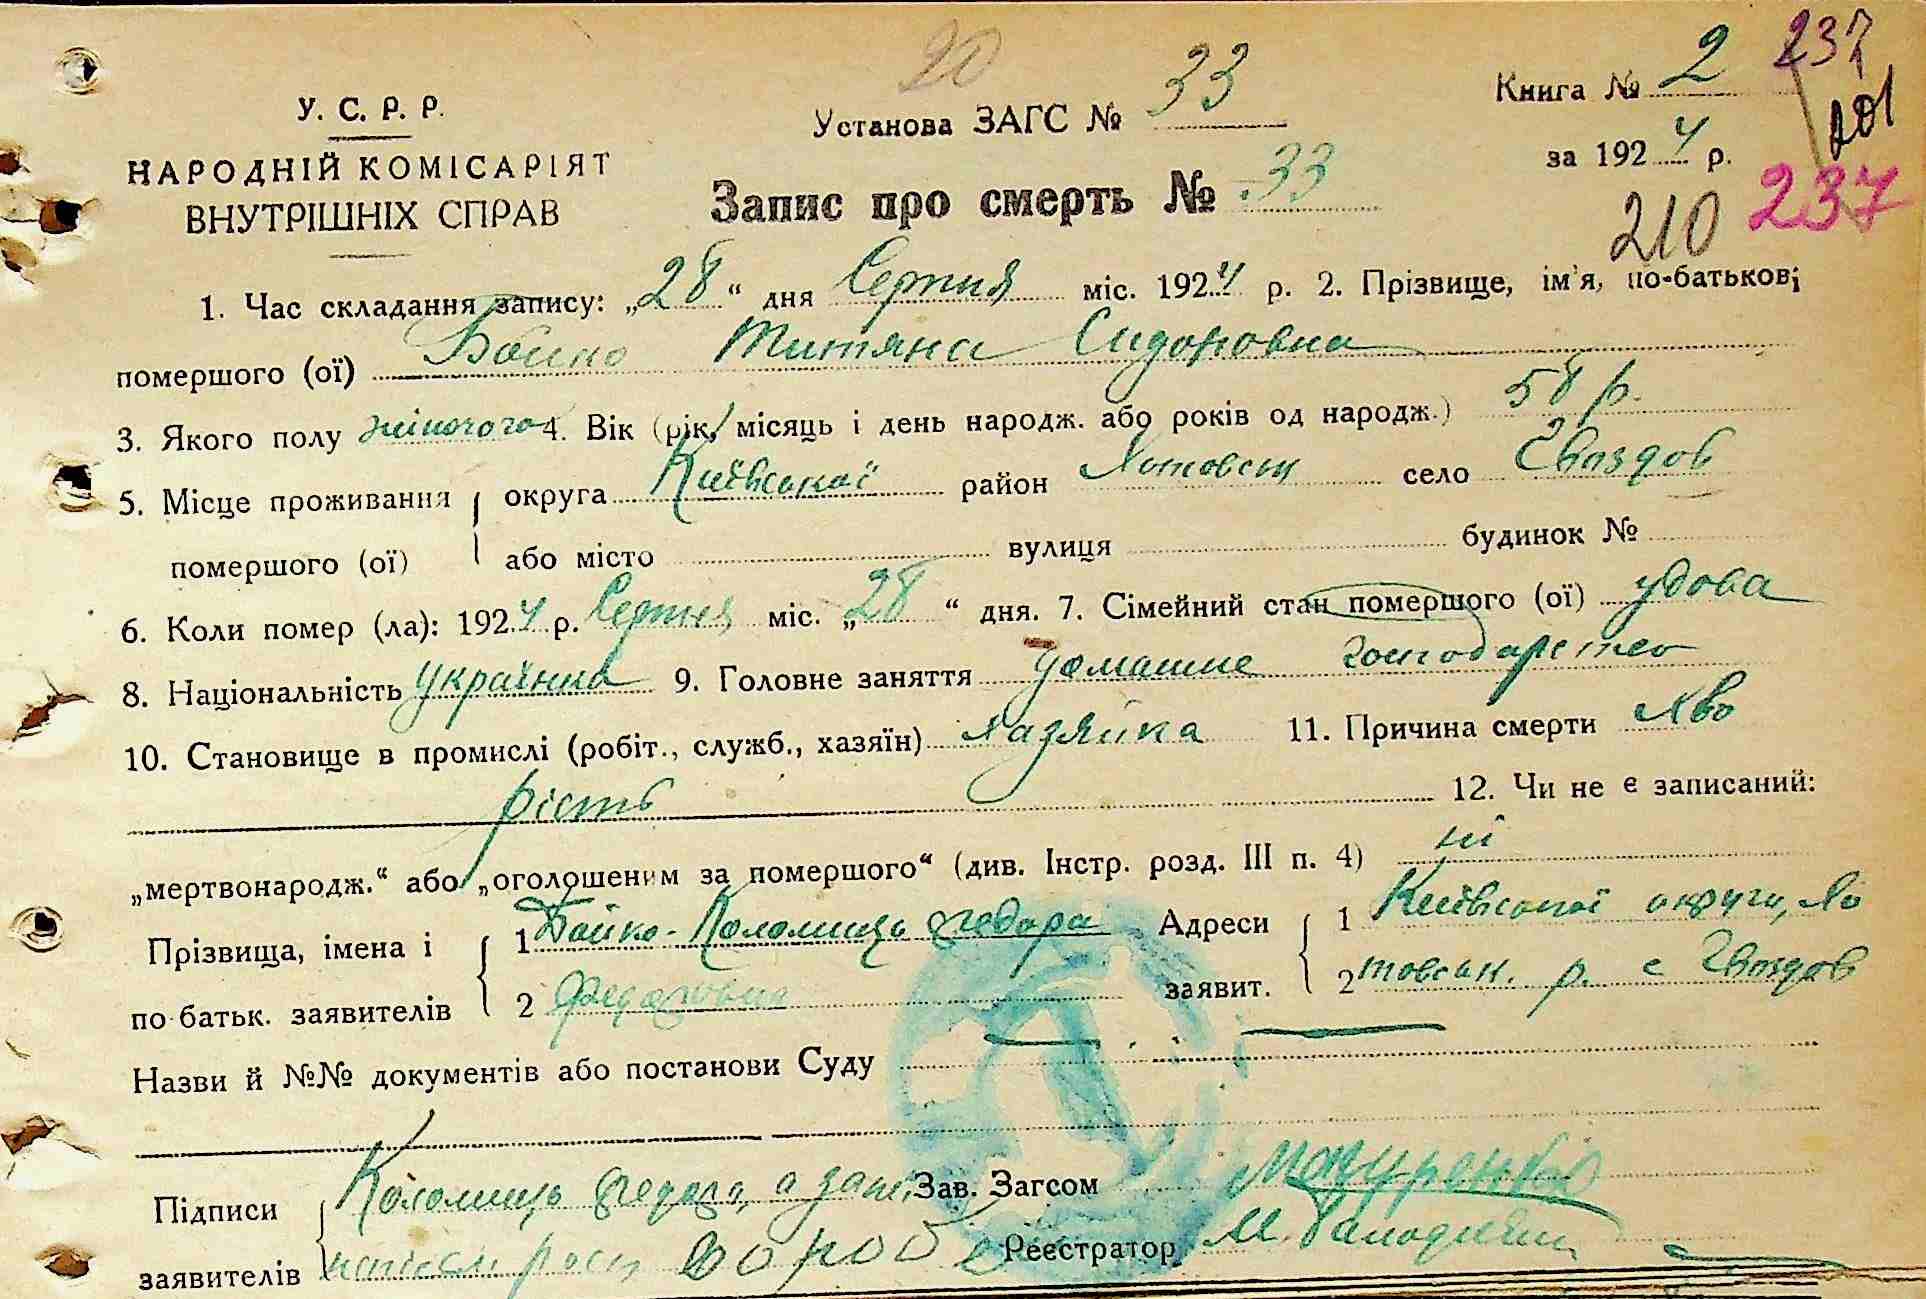 20
237
У. С. Р. Р.
Установа ЗАГС № 33
Книга № 2
201
НАРОДНІЙ КОМІСАРІЯТ
за 1924 р.
ВНУТРІШНІХ СПРАВ
Запис про смерть № 33
210 237
1. Час складання запису: „28“ дня Серпня міс. 1924 р. 2. Прізвище, ім'я, по-батькові
помершого (ої) Бойко Титяна Сидоровна
3. Якого полу жіночого 4. Вік (рік, місяць і день народж. або років од народж.) 58 р.
5. Місце проживання округа Київської район Хотовськ село Гвоздов
помершого (ої) або місто вулиця будинок №
6. Коли помер (ла): 1924 р. Серпня міс. „28“ дня. 7. Сімейний стан помершого (ої) удова
8. Національність українка 9. Головне заняття домашне господарство
10. Становище в промислі (робіт., служб., хазяїн) хазяйка 11. Причина смерти хво
рість 12. Чи не є записаний:
„мертвонародж.“ або „оголошеним за помершого“ (див. Інстр. розд. III п. 4) ні
Прізвища, імена і 1 Бойко-Коломиць Федора Адреси 1 Київської округи, Хо
по-батьк. заявителів 2 Федоровна заявит. 2 товськ. р. с Гвоздов
Назви й №№ документів або постанови Суду
Підписи Коломиць Федора, а за Зав. Загсом Мазуренко
заявителів Реєстратор М.